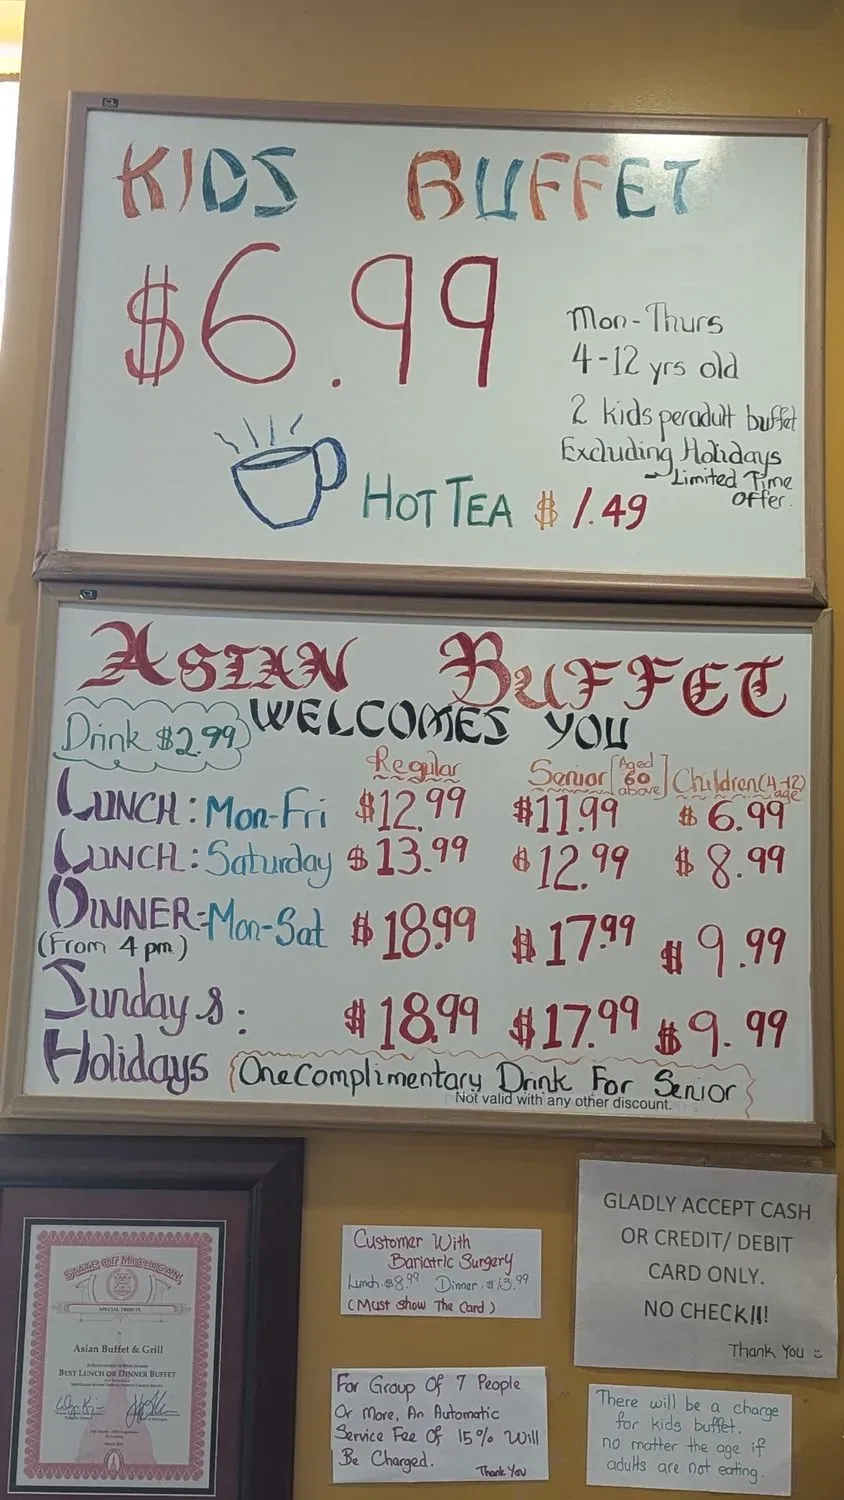 KIDS BUFFET
$6.99
Mon-Thurs
4-12 yrs old
2 kids per adult buffet
Excluding Holidays
Limited Time
Offer.
HOT TEA $1.49
ASIAN BUFFET
WELCOMES YOU
Drink $2.99
Regular Senior [Aged 60 above] Children (4-12) age
LUNCH: Mon-Fri $12.99 $11.99 $6.99
LUNCH: Saturday $13.99 $12.99 $8.99
DINNER: Mon-Sat $18.99 $17.99 $9.99
(From 4 pm)
Sunday &: $18.99 $17.99 $9.99
Holidays
One Complimentary Drink For Senior
Not valid with any other discount.
STATE OF MICHIGAN
SPECIAL TRIBUTE
Asian Buffet & Grill
BEST LUNCH OR DINNER BUFFET
Customer With
Bariatric Surgery
Lunch. $8.99 Dinner. $13.99
(Must Show The Card)
For Group Of 7 People
Or More, An Automatic
Service Fee Of 15% Will
Be Charged.
Thank You
GLADLY ACCEPT CASH
OR CREDIT/ DEBIT
CARD ONLY.
NO CHECK!!!
Thank You
There will be a charge
for kids buffet,
no matter the age if
adults are not eating.